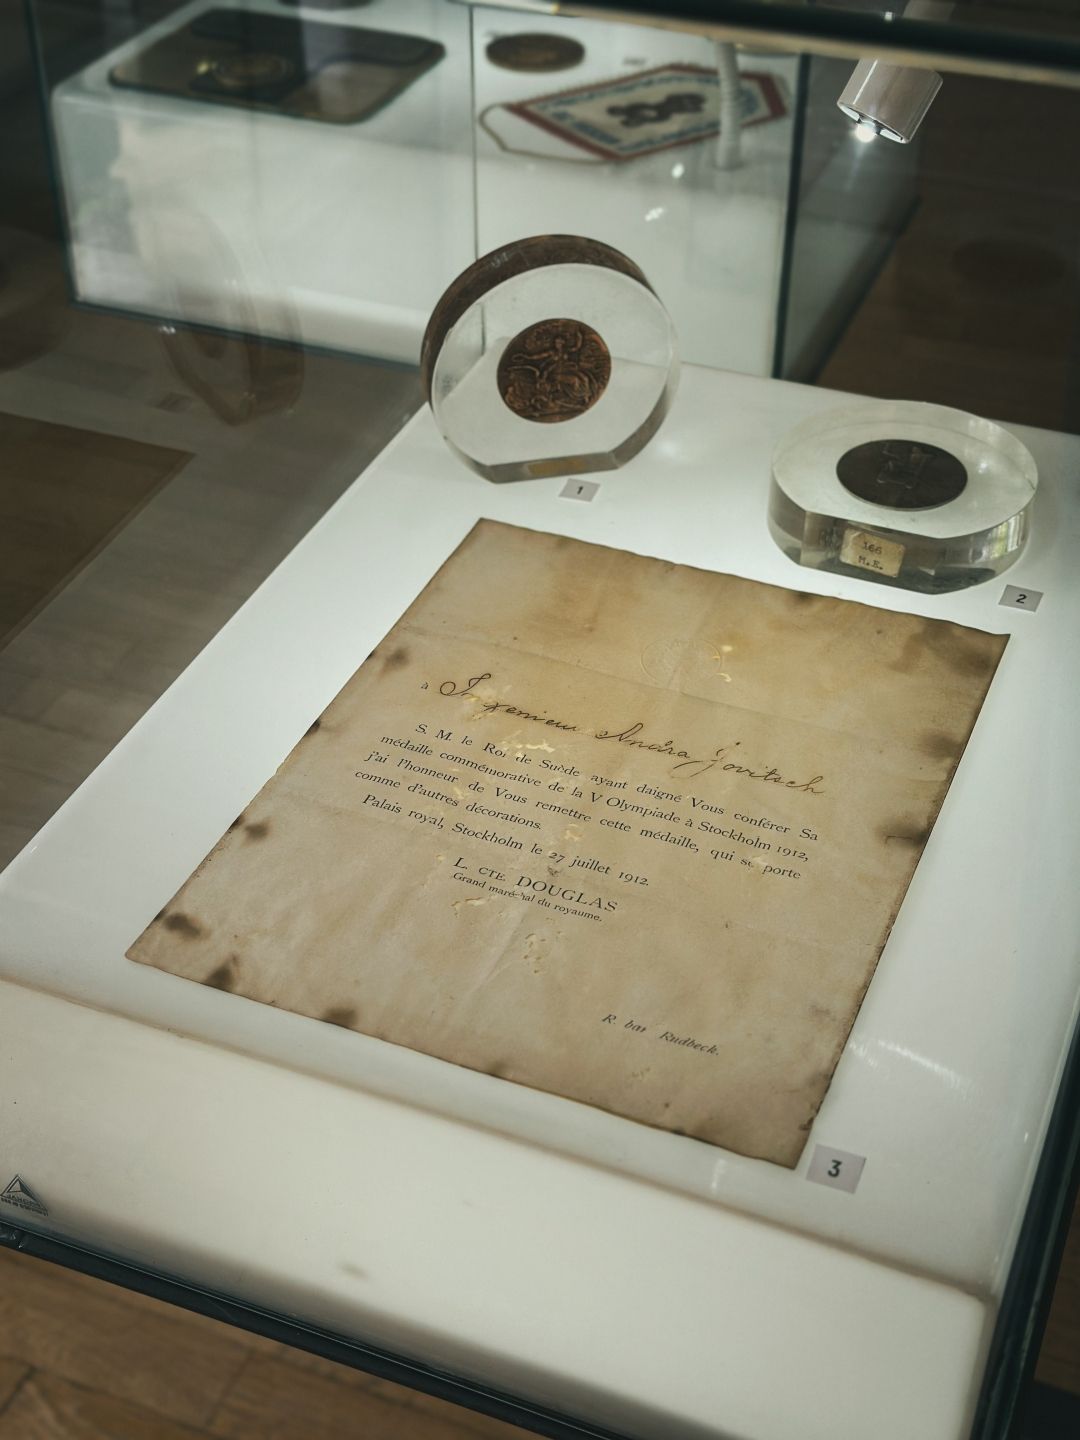 1
166
M.E.
2
à Ingenieur Andra Jovitsch
S. M. le Roi de Suède ayant daigné Vous conférer Sa
médaille commémorative de la V Olympiade à Stockholm 1912,
j'ai l'honneur de Vous remettre cette médaille, qui se porte
comme d'autres décorations.
Palais royal, Stockholm le 27 juillet 1912.
L. CTE. DOUGLAS
Grand maréchal du royaume.
R. bar Rudbeck.
3